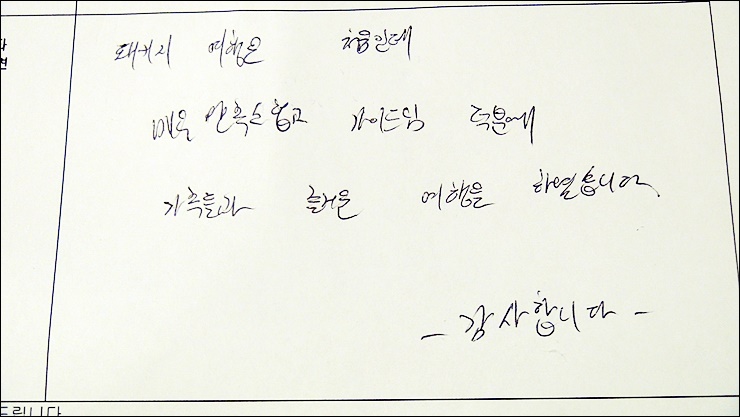 패키지 여행은 처음인데
매우 만족스럽고 가이드님 덕분에
가족들과 즐거운 여행을 하였습니다.
- 감사합니다 -
드립니다